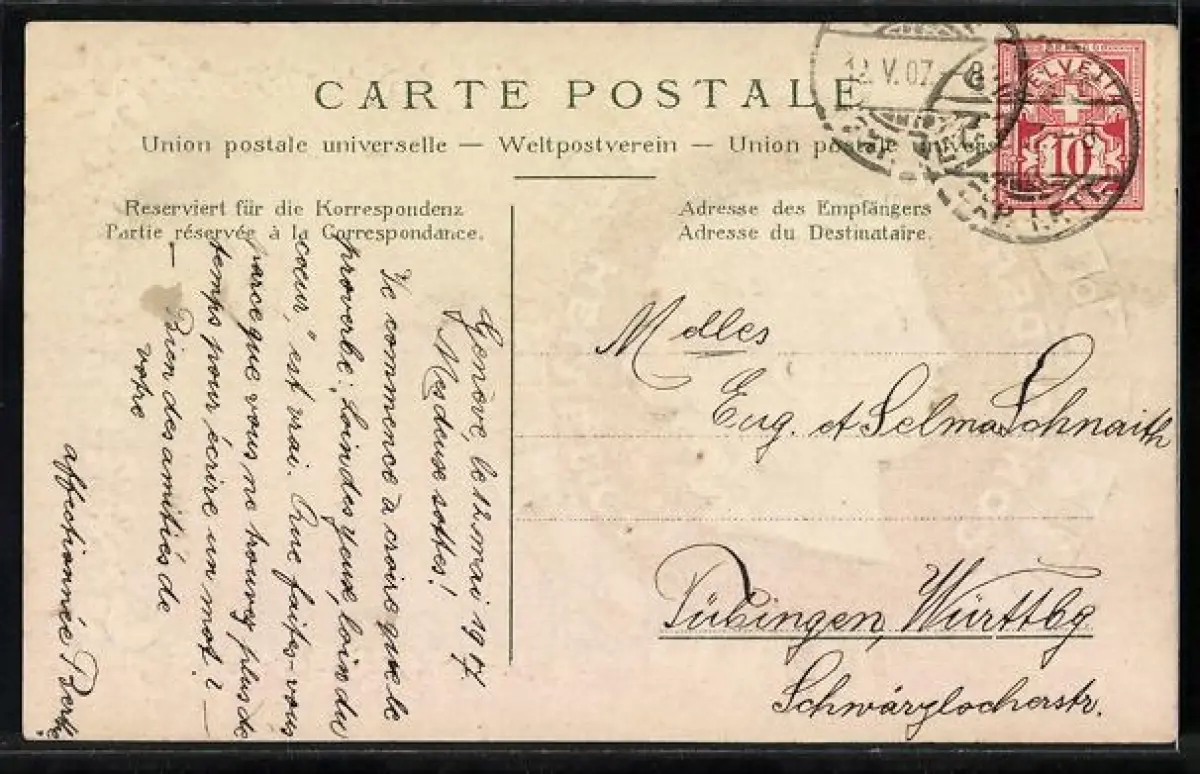 CARTE POSTALE
Union postale universelle — Weltpostverein — Union postale univers
Reserviert für die Korrespondenz
Partie réservée à la Correspondance.
Adresse des Empfängers
Adresse du Destinataire.
12.V.07. 8
HELVETIA
10
Genève, le 12. mai 1907.
Mes deux sottes!
Je commence à croire que le
proverbe: „Loin des yeux, loin du
coeur," est vrai. Que faites-vous
parce que vous ne trouvez plus de
temps pour écrire un mot? —
— Bien des amitiés de
votre
affectionnée Berthe
Mdlles
Eug. et Selma Schnaith
Tübingen, Württbg
Schwärzlocherstr.